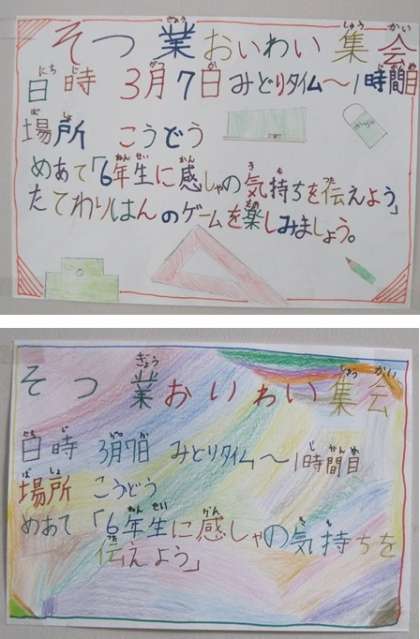 そつ業おいわい集会
日時 3月7日 みどりタイム〜1時間目
場所 こうどう
めあて「6年生に感しゃの気持ちを伝えよう」
たてわりはんのゲームを楽しみましょう。
そつ業おいわい集会
日時 3月7日 みどりタイム〜1時間目
場所 こうどう
めあて「6年生に感しゃの気持ちを
伝えよう」